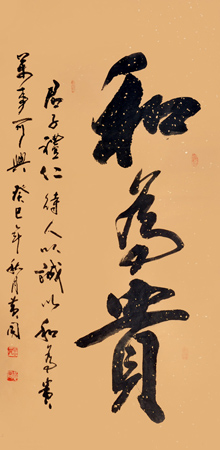 和為貴
君子禮仁待人以誠以和為貴
萬事可興癸巳年秋月黃国